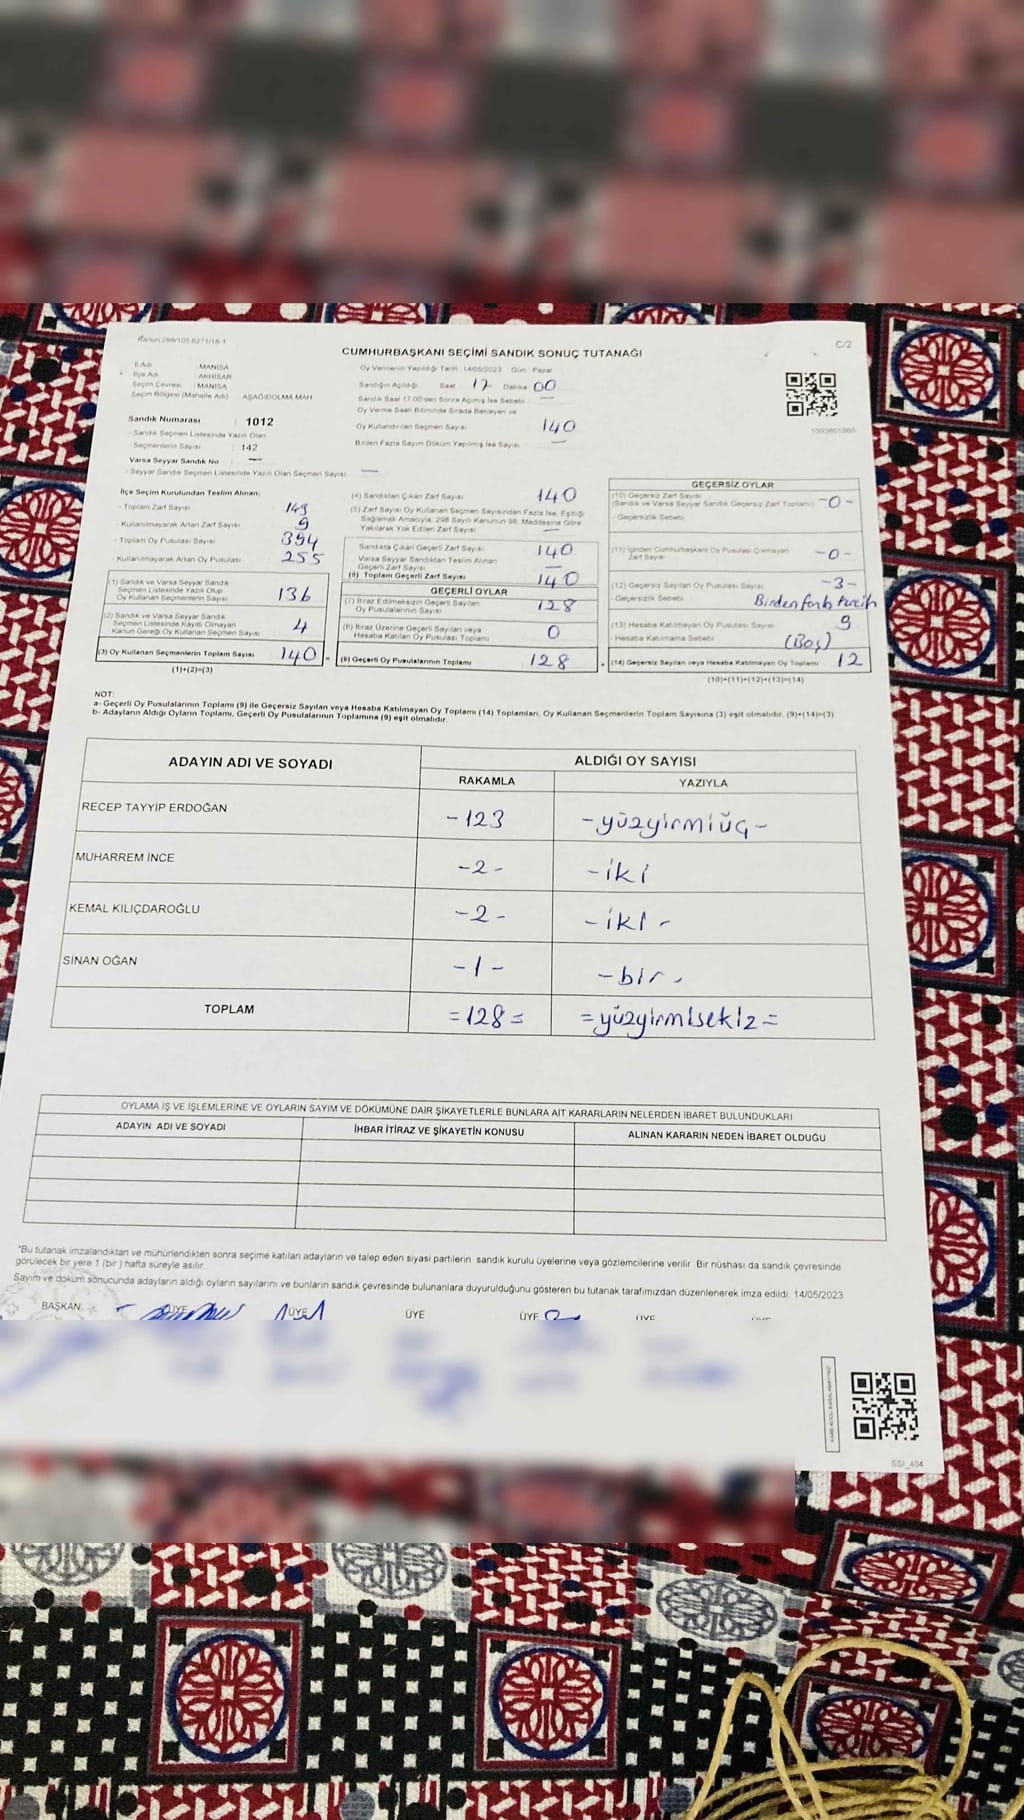 CUMHURBAŞKANI SEÇİMİ SANDIK SONUÇ TUTANAĞI
C/2
İl Adı : MANİSA
İlçe Adı : AKHİSAR
Seçim Çevresi : MANİSA
Seçim Bölgesi (Mahalle Adı) AŞAĞIDOLMA MAH
Sandık Numarası : 1012
- Sandık Seçmen Listesinde Yazılı Olan
Seçmenlerin Sayısı : 142
Varsa Seyyar Sandık No : —
- Seyyar Sandık Seçmen Listesinde Yazılı Olan Seçmen Sayısı: —
Oy Vermenin Yapıldığı Tarih :14/05/2023 Gün : Pazar
Sandığın Açıldığı Saat : 17 Dakika 00
Sandık Saat 17.00'den Sonra Açılmış İse Sebebi : —
Oy Verme Saati Bitiminde Sırada Bekleyen ve
Oy Kullandırılan Seçmen Sayısı : 140
Birden Fazla Sayım Döküm Yapılmış İse Sayısı : —
İlçe Seçim Kurulundan Teslim Alınan;
- Toplam Zarf Sayısı : 149
- Kullanılmayarak Artan Zarf Sayısı : 9
- Toplam Oy Pusulası Sayısı : 394
- Kullanılmayarak Artan Oy Pusulası : 255
(1) Sandık ve Varsa Seyyar Sandık
Seçmen Listesinde Yazılı Olup
Oy Kullanan Seçmenlerin Sayısı : 136
(2) Sandık ve Varsa Seyyar Sandık
Seçmen Listesinde Kayıtlı Olmayan
Kanun Gereği Oy Kullanan Seçmen Sayısı : 4
(3) Oy Kullanan Seçmenlerin Toplam Sayısı : 140
(1)+(2)=(3)
(4) Sandıktan Çıkan Zarf Sayısı : 140
(5) Zarf Sayısı Oy Kullanan Seçmen Sayısından Fazla İse, Eşitliği
Sağlamak Amacıyla, 298 Sayılı Kanunun 98. Maddesine Göre
Yakılarak Yok Edilen Zarf Sayısı : —
Sandıkta Çıkan Geçerli Zarf Sayısı : 140
Varsa Seyyar Sandıktan Teslim Alınan
Geçerli Zarf Sayısı : —
(6) Toplam Geçerli Zarf Sayısı : 140
GEÇERLİ OYLAR
(7) İtiraz Edilmeksizin Geçerli Sayılan
Oy Pusulalarının Sayısı : 128
(8) İtiraz Üzerine Geçerli Sayılan veya
Hesaba Katılan Oy Pusulası Toplamı : 0
(9) Geçerli Oy Pusulalarının Toplamı : 128
GEÇERSİZ OYLAR
(10) Geçersiz Zarf Sayısı
(Sandık ve Varsa Seyyar Sandık Geçersiz Zarf Toplamı) : -0-
- Geçersizlik Sebebi :
(11) İçinden Cumhurbaşkanı Oy Pusulası Çıkmayan
Zarf Sayısı : -0-
(12) Geçersiz Sayılan Oy Pusulası Sayısı : -3-
- Geçersizlik Sebebi : Birden fazla tercih
(13) Hesaba Katılmayan Oy Pusulası Sayısı : 9
- Hesaba Katılmama Sebebi : (Boş)
(14) Geçersiz Sayılan veya Hesaba Katılmayan Oy Toplamı : 12
(10)+(11)+(12)+(13)=(14)
NOT:
a- Geçerli Oy Pusulalarının Toplamı (9) ile Geçersiz Sayılan veya Hesaba Katılmayan Oy Toplamı (14) Toplamları, Oy Kullanan Seçmenlerin Toplam Sayısına (3) eşit olmalıdır. (9)+(14)=(3)
b- Adayların Aldığı Oyların Toplamı, Geçerli Oy Pusulalarının Toplamına (9) eşit olmalıdır.
ADAYIN ADI VE SOYADI ALDIĞI OY SAYISI
RAKAMLA YAZIYLA
RECEP TAYYİP ERDOĞAN -123 -yüzyirmiüç-
MUHARREM İNCE -2- -iki
KEMAL KILIÇDAROĞLU -2- -iki-
SİNAN OĞAN -1- -bir-
TOPLAM =128= =yüzyirmisekiz=
OYLAMA İŞ VE İŞLEMLERİNE VE OYLARIN SAYIM VE DÖKÜMÜNE DAİR ŞİKAYETLERLE BUNLARA AİT KARARLARIN NELERDEN İBARET BULUNDUKLARI
ADAYIN ADI VE SOYADI İHBAR İTİRAZ VE ŞİKAYETİN KONUSU ALINAN KARARIN NEDEN İBARET OLDUĞU
*Bu tutanak imzalandıktan ve mühürlendikten sonra seçime katılan adayların ve talep eden siyasi partilerin sandık kurulu üyelerine veya gözlemcilerine verilir. Bir nüshası da sandık çevresinde
görülecek bir yere 1 (bir ) hafta süreyle asılır.
Sayım ve döküm sonucunda adayların aldığı oyların sayılarını ve bunların sandık çevresinde bulunanlara duyurulduğunu gösteren bu tutanak tarafımızdan düzenlenerek imza edildi. 14/05/2023
BAŞKAN ÜYE ÜYE ÜYE ÜYE ÜYE
SSI_404